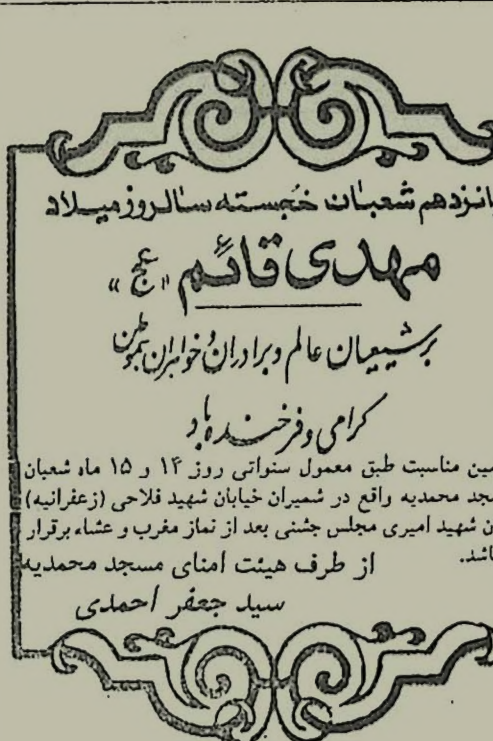 انزدهم شعبان خجسته سالروز میلاد
مهدی قائم «عج»
بر شیعیان عالم و برادران و خواهران هموطن
گرامی و فرخنده باد
مین مناسبت طبق معمول سنواتی روز ۱۴ و ۱۵ ماه شعبان
جد محمدیه واقع در شمیران خیابان شهید فلاحی (زعفرانیه)
ن شهید امیری مجلس جشنی بعد از نماز مغرب و عشاء برقرار
باشد.
از طرف هیئت امنای مسجد محمدیه
سید جعفر احمدی